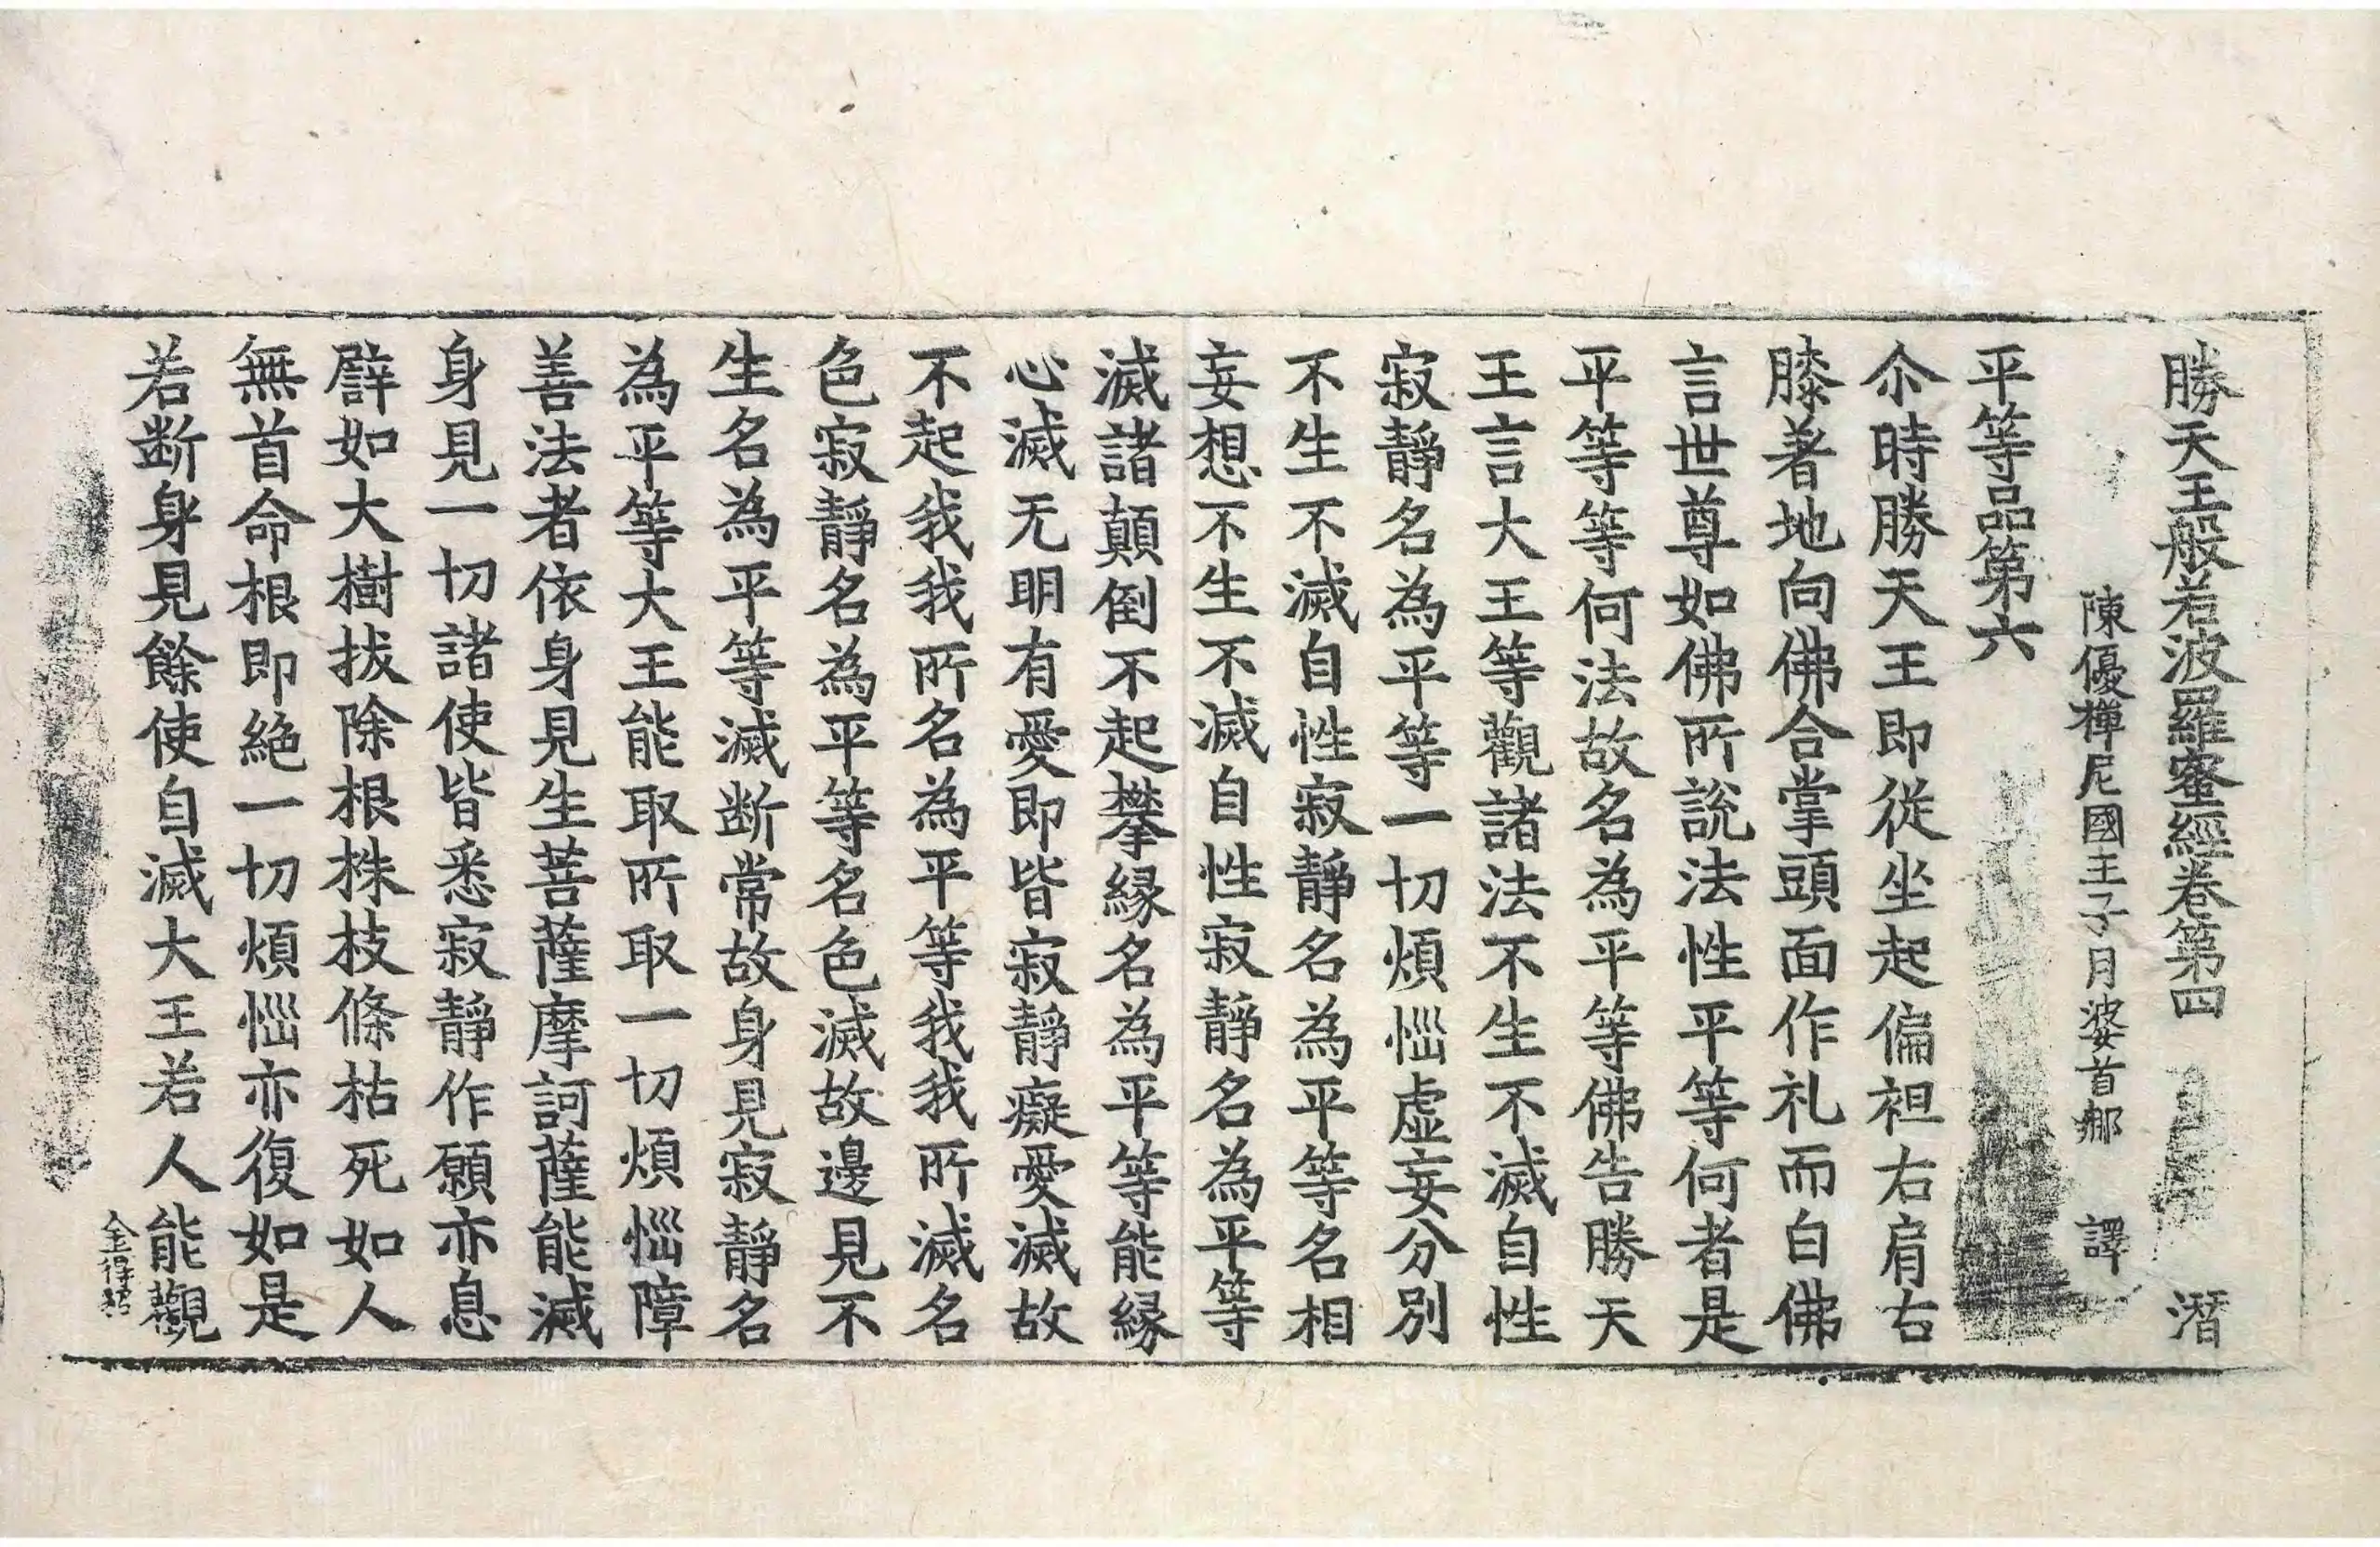 勝天王般若波羅蜜經卷第四 潛
陳優禪尼國王子月婆首那 譯
平等品第六
尒時勝天王即從坐起偏袒右肩右
膝著地向佛合掌頭面作礼而白佛
言世尊如佛所說法性平等何者是
平等等何法故名為平等佛告勝天
王言大王等觀諸法不生不滅自性
寂靜名為平等一切煩惱虛妄分別
不生不滅自性寂靜名為平等名相
妄想不生不滅自性寂靜名為平等
滅諸顛倒不起攀緣名為平等能緣
心滅无明有愛即皆寂靜癡愛滅故
不起我我所名為平等我我所滅名
色寂靜名為平等名色滅故邊見不
生名為平等滅斷常故身見寂靜名
為平等大王能取所取一切煩惱障
善法者依身見生菩薩摩訶薩能滅
身見一切諸使皆悉寂靜作願亦息
譬如大樹拔除根株枝條枯死如人
無首命根即絕一切煩惱亦復如是
若斷身見餘使自滅大王若人能觀